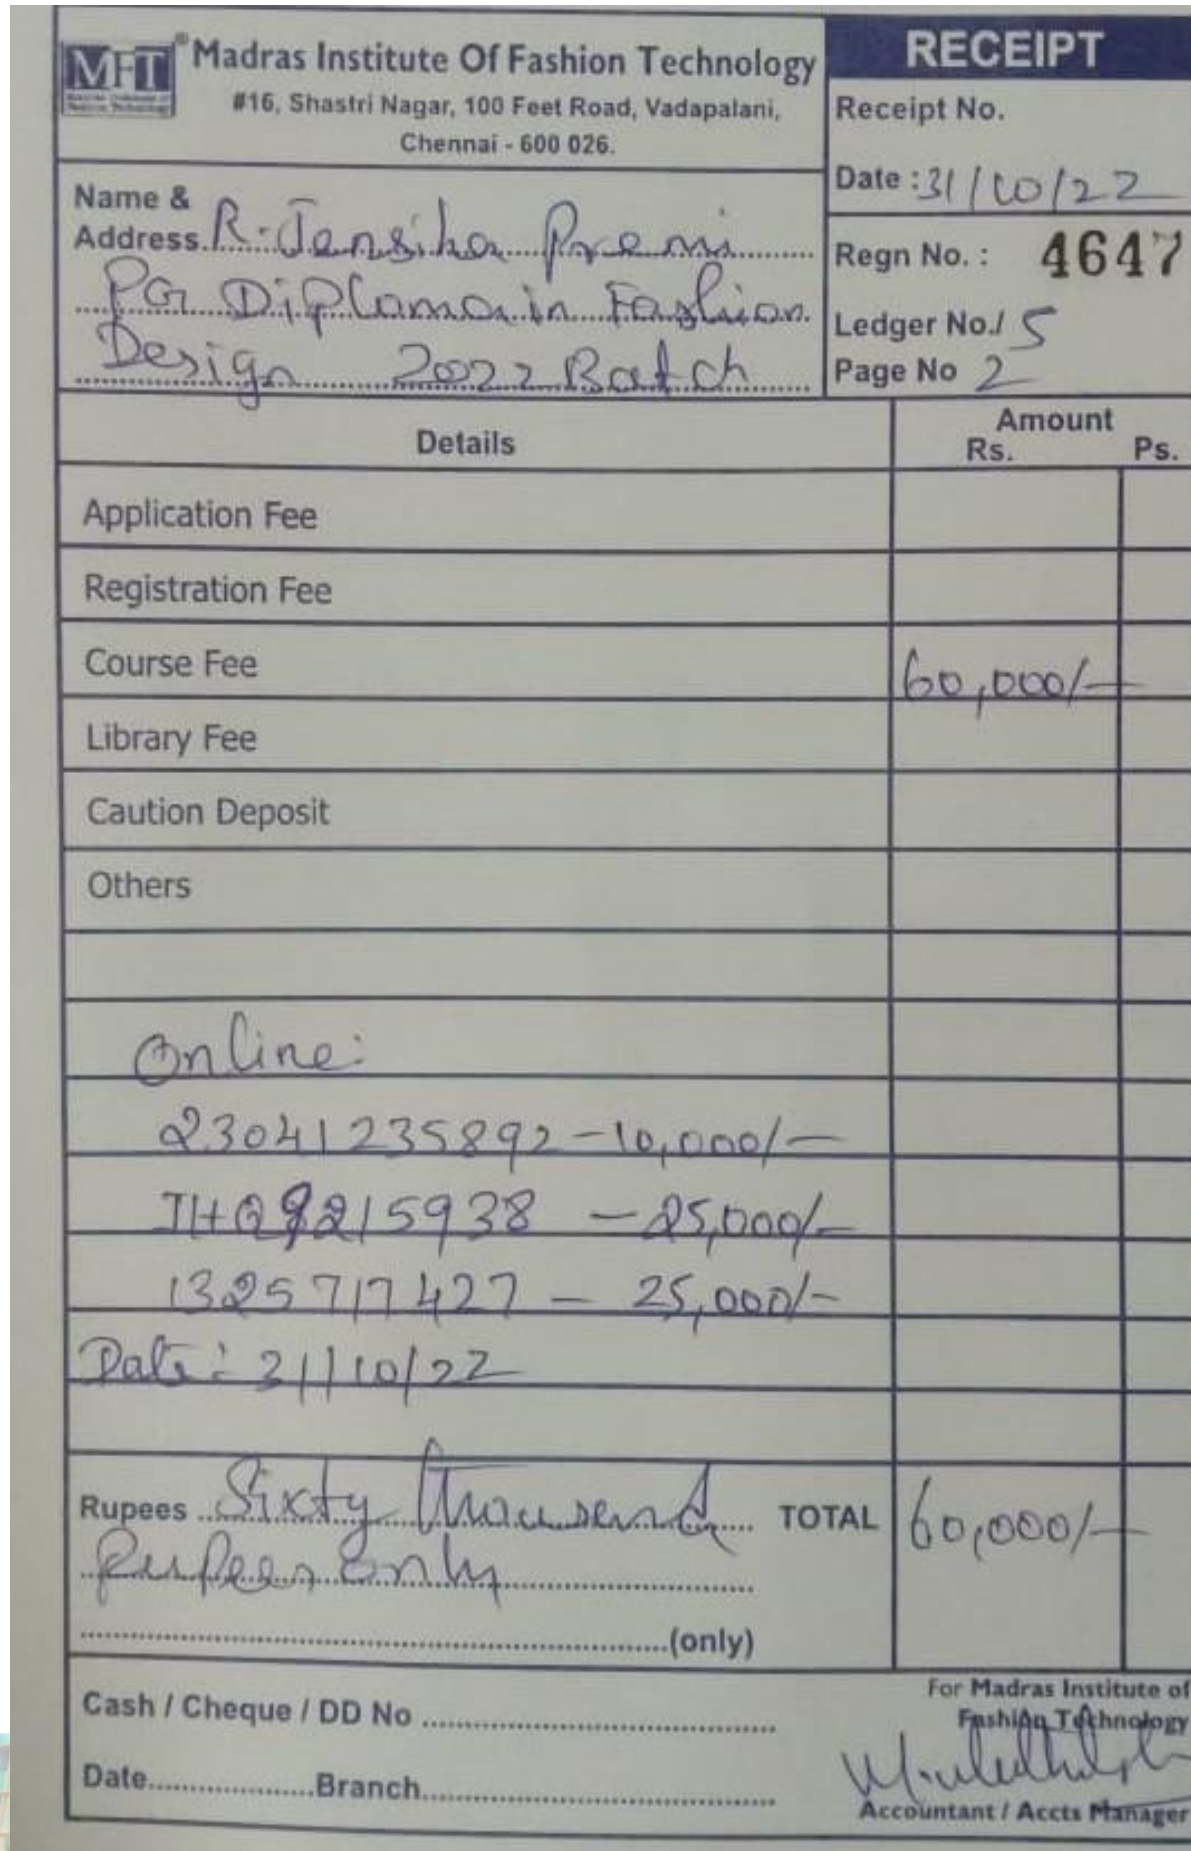 MFT
Madras Institute Of Fashion Technology
#16, Shastri Nagar, 100 Feet Road, Vadapalani,
Chennai - 600 026.
RECEIPT
Receipt No.
Date : 31/10/22
Name &
Address R. Jensika Premi
PG Diploma in Fashion
Design 2022 Batch
Regn No. : 4647
Ledger No./ 5
Page No 2
Details
Amount
Rs. Ps.
Application Fee
Registration Fee
Course Fee 60,000/-
Library Fee
Caution Deposit
Others
Online:
23041235892 - 10,000/-
215938 - 25,000/-
1325717427 - 25,000/-
Date: 31/10/22
Rupees Sixty thousand TOTAL 60,000/-
rupees only
(only)
Cash / Cheque / DD No
Date Branch
For Madras Institute of
Fashion Technology
Accountant / Accts Manager